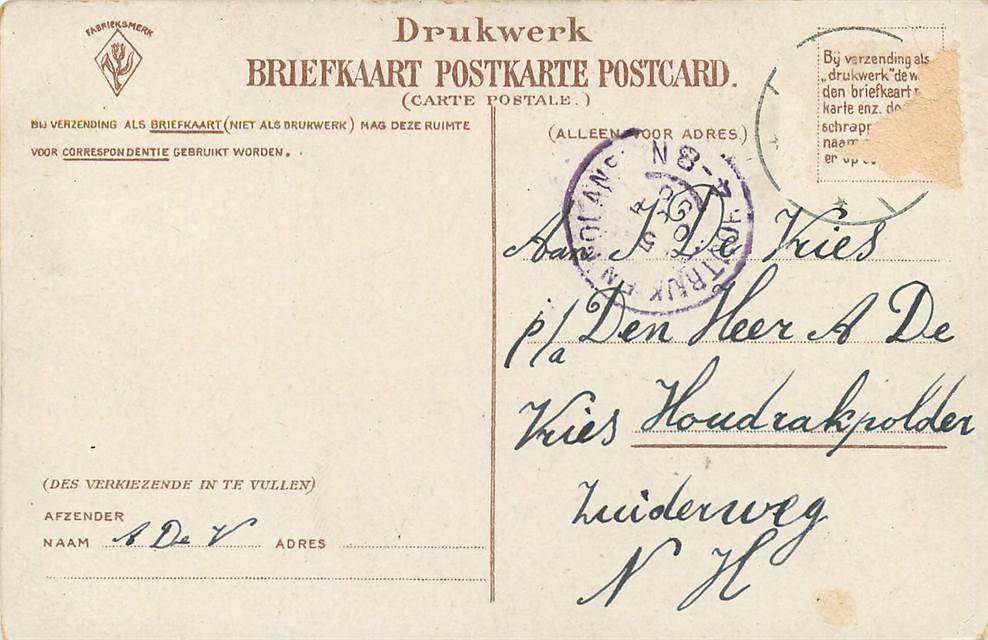 FABRIEKSMERK
Drukwerk
BRIEFKAART POSTKARTE POSTCARD.
(CARTE POSTALE.)
BIJ VERZENDING ALS BRIEFKAART (NIET ALS DRUKWERK) MAG DEZE RUIMTE
VOOR CORRESPONDENTIE GEBRUIKT WORDEN.
(ALLEEN VOOR ADRES.)
Bij verzending als
„drukwerk" de
den briefkaart
karte enz.
schrapp
naam
er op
N 8-
Aan J De Vries
p/a Den Heer A De
Vries Houdrakpolder
Zuiderweg
N H
(DES VERKIEZENDE IN TE VULLEN)
AFZENDER
NAAM A De V ADRES